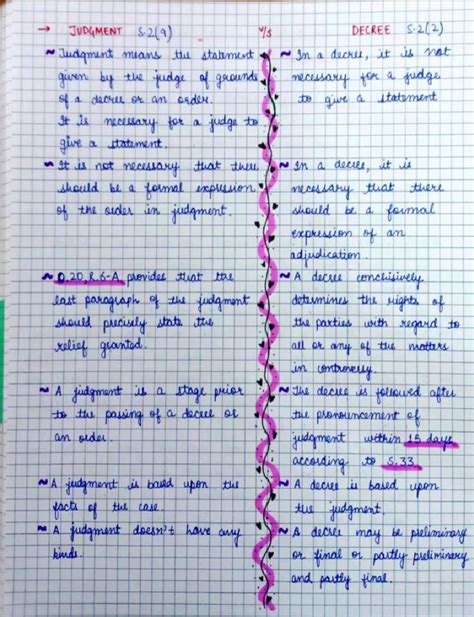 → JUDGMENT S.2(9) v/s DECREE S.2(2)
~ Judgment means the statement
given by the judge of grounds
of a decree or an order.
It is necessary for a judge to
give a statement.
~ It is not necessary that there
should be a formal expression
of the order in judgment.
~ O.20 R.6-A provides that the
last paragraph of the judgment
should precisely state the
relief granted.
~ A judgment is a stage prior
to the passing of a decree or
an order.
~ A judgment is based upon the
facts of the case.
~ A judgment doesn't have any
kinds.
~ In a decree, it is not
necessary for a judge
to give a statement
~ In a decree, it is
necessary that there
should be a formal
expression of an
adjudication.
~ A decree conclusively
determines the rights of
the parties with regard to
all or any of the matters
in controversy.
~ The decree is followed after
the pronouncement of
judgment within 15 days
according to S.33.
~ A decree is based upon
the judgment.
~ A decree may be preliminary
or final or partly preliminary
and partly final.